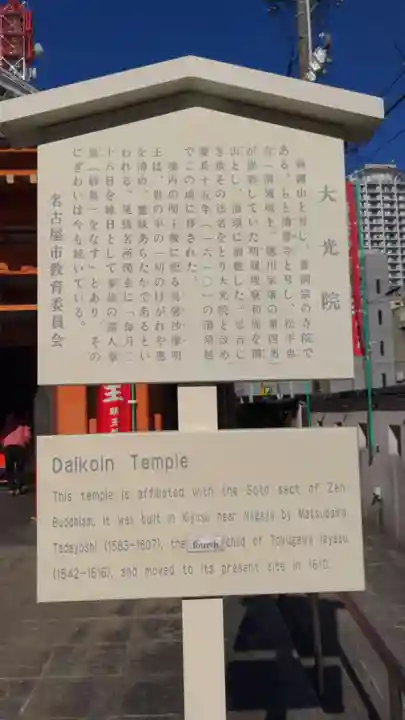 大光院
興国山と号し、曹洞宗の寺院で
ある。もと清善寺と号し、松平忠
吉（清須城主、徳川家康の第四男）
が
その法名をとり大光院と改め
慶長十五年（一六一〇）の清須越
でこの地に移された。
境内の明王殿に祀る烏蒭沙摩明
王は、世の中の一切のけがれや悪
を清め、霊験あらたかであるとい
われる。尾張名所図会に「毎月二
十八日を縁日として
をなす」とあり、その
にぎわいは今も続いている。
名古屋市教育委員会
王
Daikoin Temple
This temple is affiliated with the Soto sect of Zen
Buddhism. It was built in Kiyosu near Nagoya by Matsudaira
Tadayoshi (1583-1607), the fourth child of Tokugawa Ieyasu
(1542-1616), and moved to its present site in 1610.